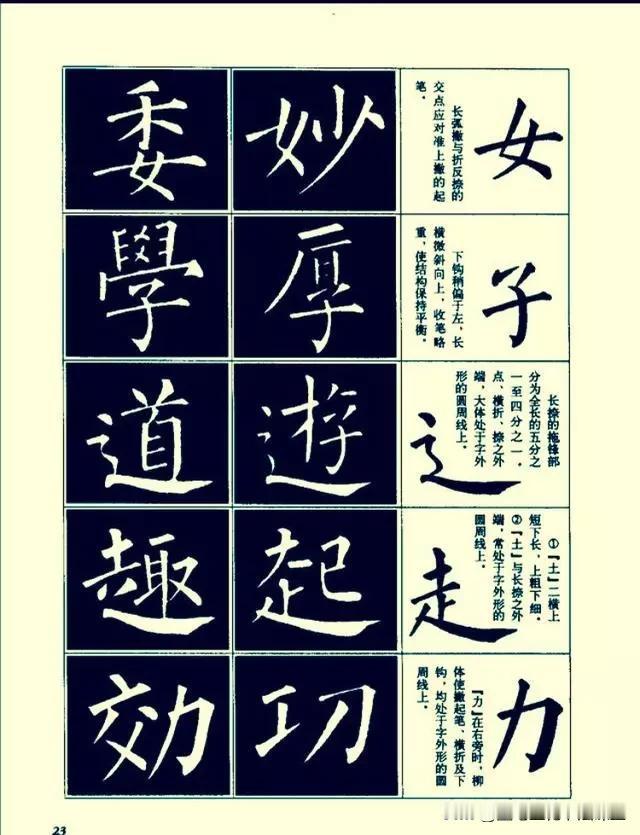 女
长弧撇与折反捺的
交点应对准上撇的起
笔。
妙
委
子
下钩稍偏于左，长
横微斜向上，收笔略
重，使结构保持平衡。
厚
學
辶
长捺的拖锋部
分为全长的五分之
一至四分之一。
点、横折、捺之外
端，大体处于字外
形的圆周线上。
遊
道
走
①『土』二横上
短下长，上粗下细。
②『土』与长捺之外
端，常处于字外形的
圆周线上。
起
趣
力
『力』在右旁时，柳
体使撇起笔、横折及下
钩，均处于字外形的圆
周线上。
功
効
23